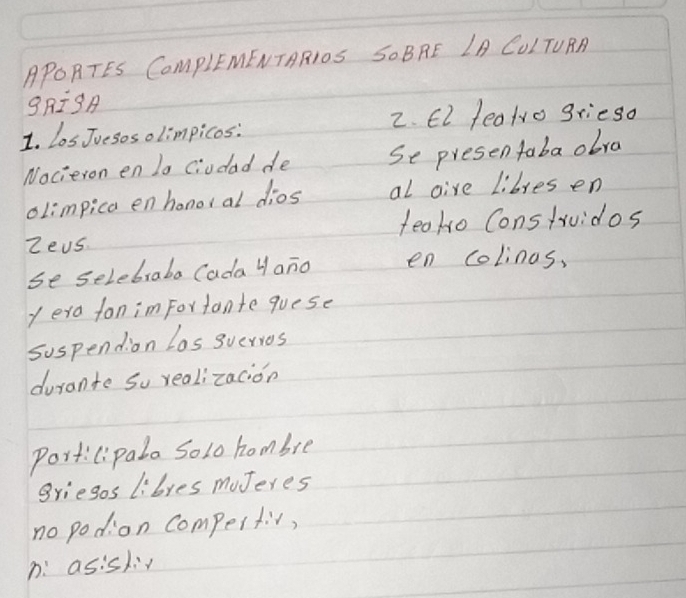 APORTES COMPLEMENTARIOS SOBRE LA CULTURA
GRIGA
1. Los Juegos olimpicos:
Nacieron en la Ciudad de
olimpica en honor al dios
Zeus.
se selebraba Cada 4 año
y era tan importante que se
suspendian Las guerras
durante su realización
participaba Solo hombre
griegos libres mujeres
no podian compertir,
ni asistir
2. El teatro griego
Se presentaba obra
al aire Libres en
teatro Construidos
en colinas,